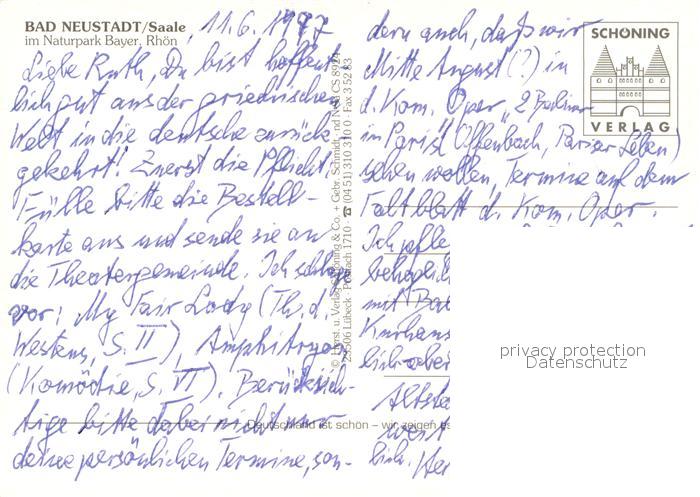 BAD NEUSTADT/Saale
im Naturpark Bayer. Rhön
11.6.1997
Liebe Ruth, Du bist hoffent-
lich gut aus der griechischen
Welt in die deutsche zurück-
gekehrt! Zuerst die Pflicht:
Fülle bitte die Bestell-
karte aus und sende sie an
die Theatergemeinde. Ich schlage
vor: My Fair Lady (Th. d.
Westens, S. II), Amphitryon
(Komödie, S. VI). Berücksich-
tige bitte dabei nicht nur
deine persönlichen Termine, son-
dern auch, daß wir
Mitte August (?) in
d. Kom. Oper "2 Berliner
in Paris" (Offenbach, Pariser Leben)
sehen wollen, Termine auf dem
Faltblatt d. Kom. Oper.
Ich
mit
Kurhaus
lich
weit
lich.
SCHÖNING
VERLAG
© Kunst- u. Verlag Schöning & Co. + Gebr. Schmidt
23506 Lübeck · Postfach 1710 · ☎ (04 51) 310 310 0 · Fax 3 52 83
Deutschland ist schön – wir zeigen es
privacy protection
Datenschutz